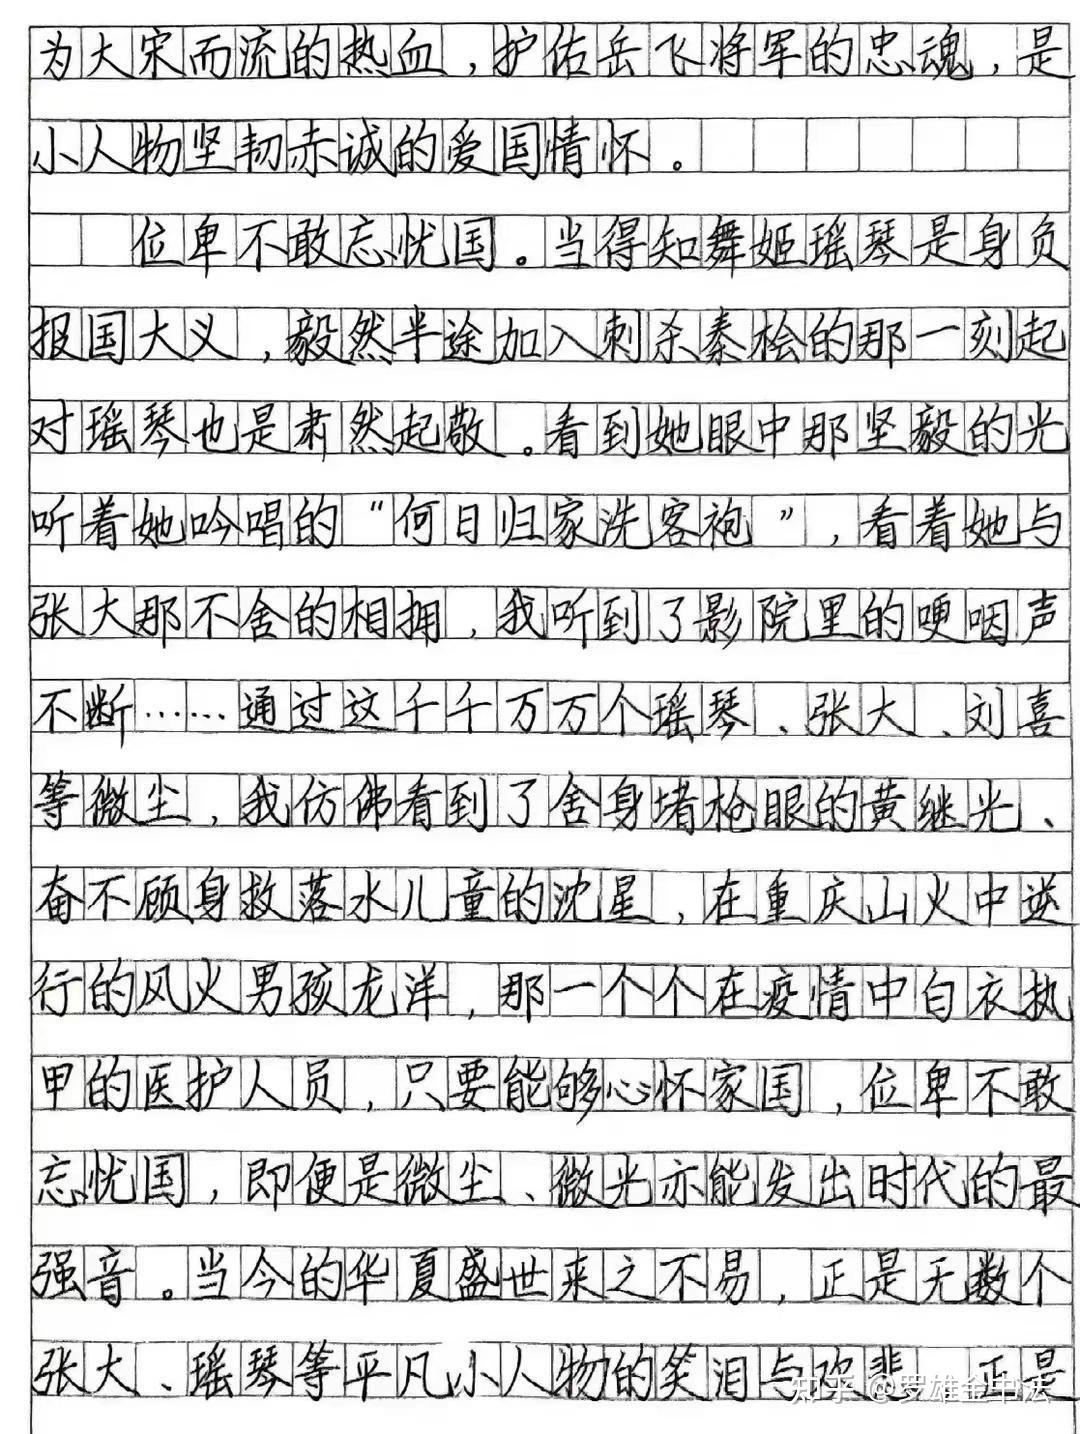 为大宋而流的热血,护佑岳飞将军的忠魂,是
小人物坚韧赤诚的爱国情怀。
位卑不敢忘忧国。当得知舞姬瑶琴是身负
报国大义,毅然半途加入刺杀秦桧的那一刻起
对瑶琴也是肃然起敬。看到她眼中那坚毅的光
听着她吟唱的“何日归家洗客袍”,看着她与
张大那不舍的相拥,我听到了影院里的哽咽声
不断……通过这千千万万个瑶琴、张大、刘喜
等微尘,我仿佛看到了舍身堵枪眼的黄继光、
奋不顾身救落水儿童的沈星,在重庆山火中逆
行的风火男孩龙洋,那一个个在疫情中白衣执
甲的医护人员,只要能够心怀家国,位卑不敢
忘忧国,即便是微尘、微光亦能发出时代的最
强音。当今的华夏盛世来之不易,正是无数个
张大、瑶琴等平凡小人物的笑泪与欢悲 正是
知乎 @罗雄金中法